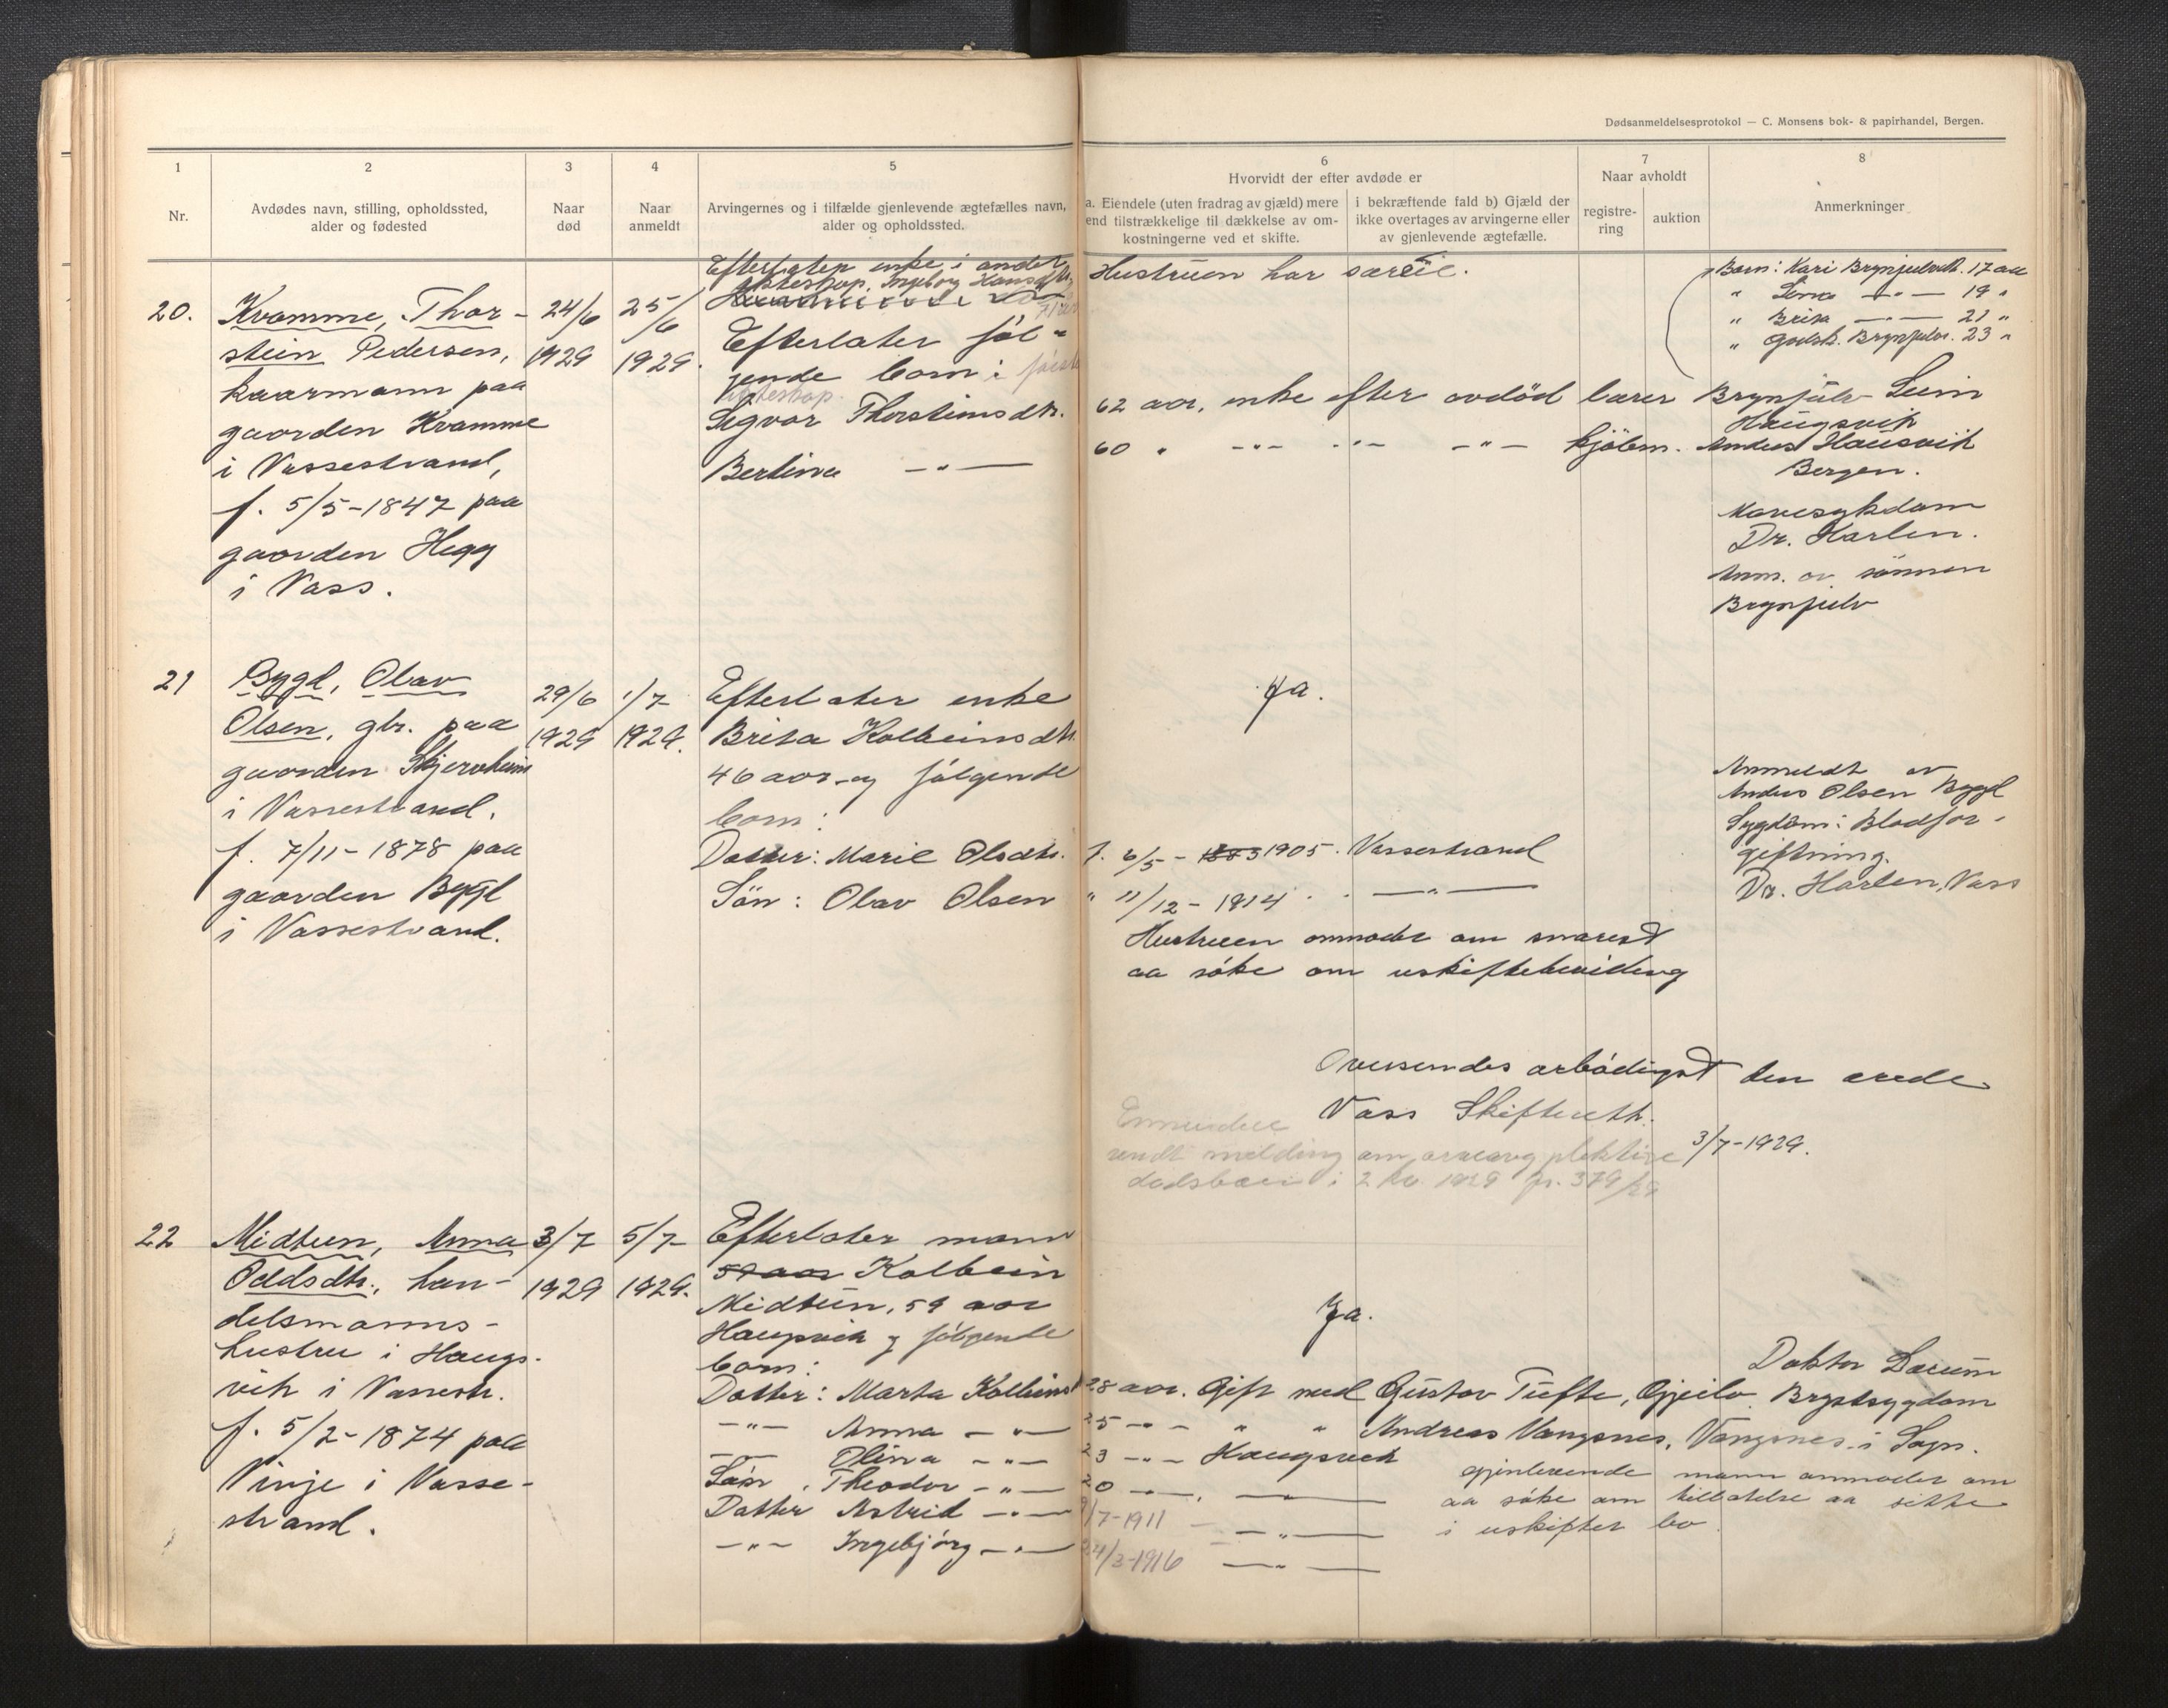 Dødsanmeldelsesprotokol — C. Monsens bok- & papirhandel, Bergen.
1 2 3 4 5 6 7 8
Nr.
Avdødes navn, stilling, opholdssted,
alder og fødested
Naar
død
Naar
anmeldt
Arvingernes og i tilfælde gjenlevende ægtefælles navn,
alder og opholdssted.
Hvorvidt der efter avdøde er
a. Eiendele (uten fradrag av gjæld) mere
end tilstrækkelige til dækkelse av om-
kostningerne ved et skifte.
i bekræftende fald b) Gjæld der
ikke overtages av arvingerne eller
av gjenlevende ægtefælle.
Naar avholdt
registre-
ring
auktion
Anmerkninger
20.
Kvamme, Thor-
stein Pedersen,
kaarmann paa
gaarden Kvamme
i Vassestrand,
f. 5/5-1847 paa
gaarden Hegg
i Vass.
24/6
1929
25/6
1929.
Efterlater enke i andet
ekteskap, Ingeborg Hansdtr.
Efterlater føl-
gende born i første
ekteskap.
Sigvor Thorsteinsdtr.
Bertina —"—
Hustruen har særeie.
62 aar, enke efter avdød lærer Brynjulv Seim
Haugsvik
60 " -"- -"- -"- kjøbm. Anders Haugsvik
Bergen.
Born: Kari Brynjulvdt. 17 aar
" —"— 19 "
" Brita —"— 21 "
" Brynjulvs. 23 "
Mavesykdom
Dr. Harlem.
Anm. av sønnen
Brynjulv
21
Bygd, Olav
Olsen, gbr. paa
gaarden Skjerveheim
i Vassestrand.
f. 7/11-1878 paa
gaarden Bygd
i Vassestrand.
29/6
1929
1/7
1929.
Efterlater enke
Brita Kolbeinsdtr.
46 aar og følgende
born:
Datter: Marie Olsdtr.
Søn: Olav Olsen
Ja.
f. 6/5-1903 1905. Vassestrand
" 11/12-1914 . . —"—
Hustruen anmoder om snarest
aa søke om uskiftebevilling
Anmeldt av
Anders Olsen Bygd
Sygdom: Blodfor-
giftning.
Dr. Harlem, Vass
Oversendes ærbødigst den ærede
Vass Skifterett.
3/7-1929.
sendt melding om
dødsboer i 2 kv. 1929 jr. 379/29
22
Midtun, Anna
Oddsdtr., han-
delsmanns-
hustru i Haugs-
vik i Vassestr.
f. 5/2-1874 paa
Vinje i Vasse-
strand.
3/7
1929
5/7
1929.
Efterlater mann
59 aar Kolbein
Midtun, 59 aar
Haugsvik og følgende
born:
Datter: Marta Kolbeinsd
—"— Anna —"—
—"— Olina —"—
Søn, Theodor —"—
Datter Astrid —"—
—"— Ingebjørg —"—
Ja.
28 aar. Gift med Gustav Tufte, Gjeilo.
25 —"— " " Andreas Vangsnes, Vangsnes i Sogn.
23 —"— Haugsvik
20 —"—. —"—
9/7-1911 —"—
24/3-1916 —"—
Doktor Lærum
Brystsygdom
gjenlevende mann anmoder om
aa søke om tillatelse aa sitte
i uskiftet bo.